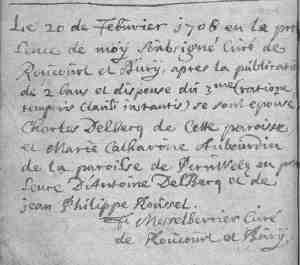 Le 20 de Febuvrier 1706 en la pre
sence de moy soubsigné Curé de
Roucourt et Bury, apres la publication
de 2 bans et dispense du 3me (ratione
temporis clausi instantis) se sont epousé
Charles Delbecq de Cette paroisse
et Marie Catharine Aubourdin
de la paroisse de Peruwelz en pre
sence D'Antoine DelBecq et de
jean Philippe
Curé
de Roucourt et Bury.